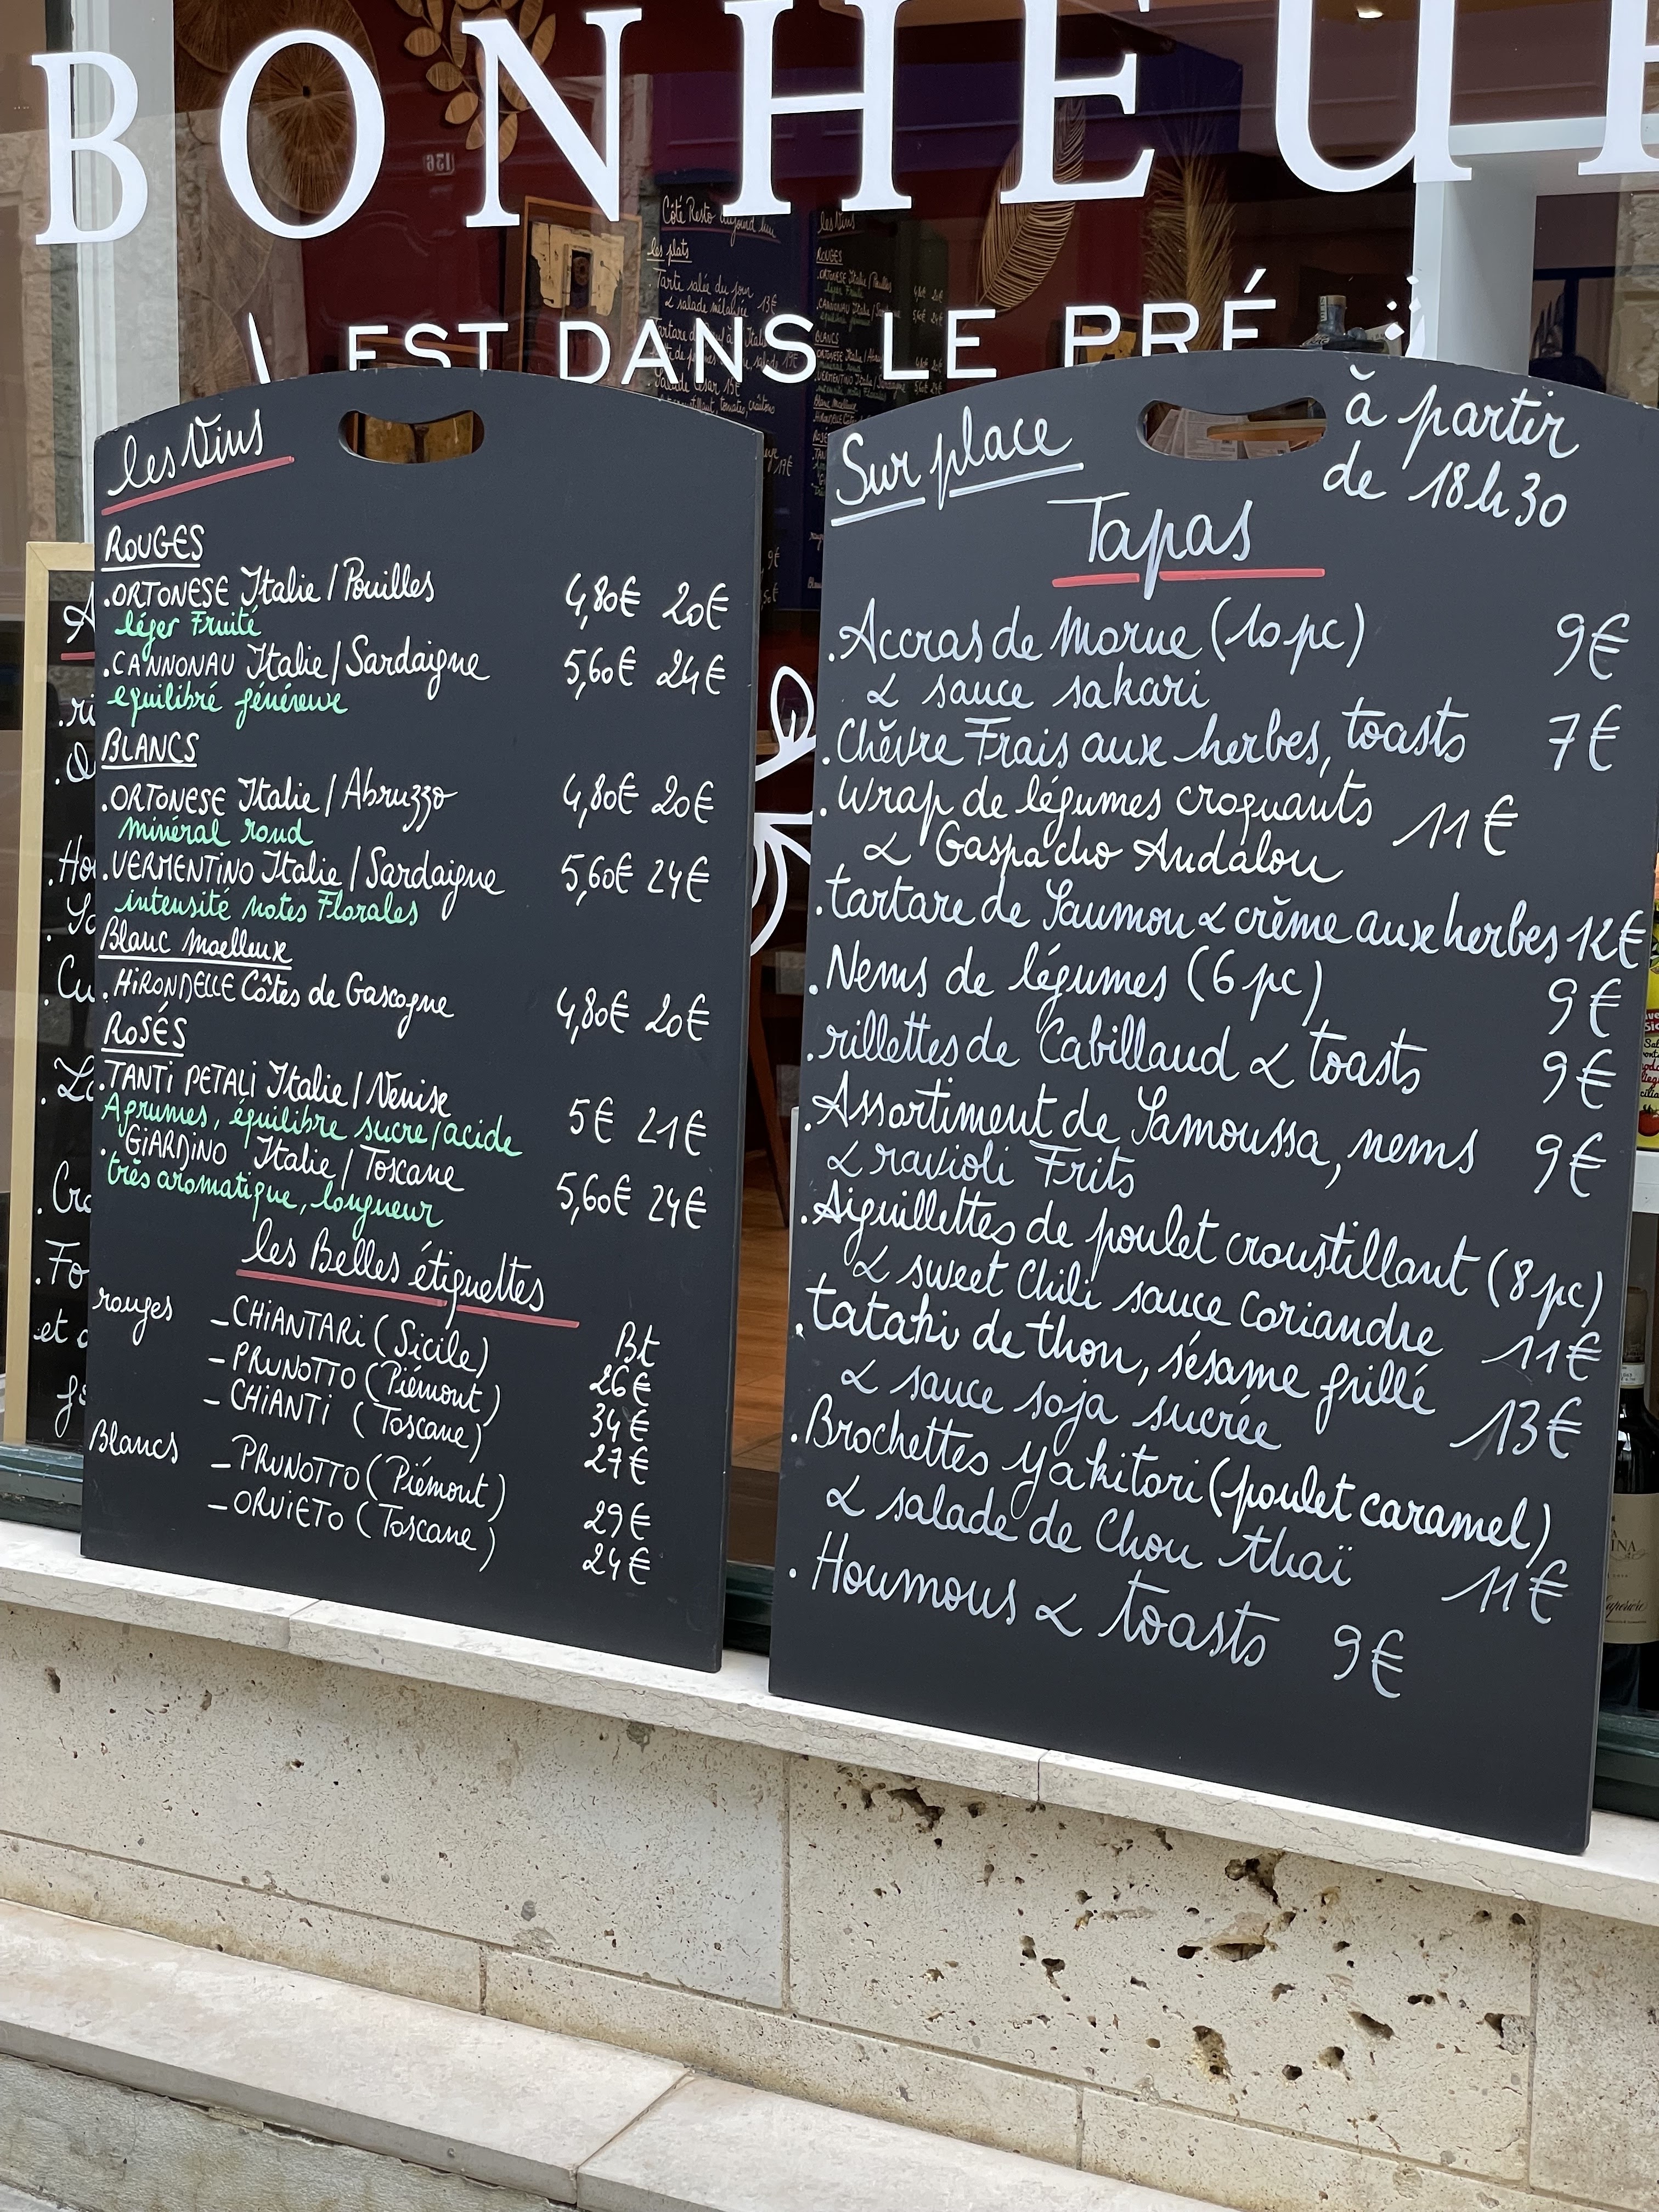 BONHEUR
EST DANS LE PRÉ
Côté Resto aujourd'hui
les plats
Tarte salée du jour
& salade mélangée 13€
les Vins
ROUGES
.ORTONESE Italie / Pouilles 4,80€ 20€
léger Fruité
.CANNONAU Italie / Sardaigne 5,60€ 24€
equilibré généreux
BLANCS
.ORTONESE Italie / Abruzzo 4,80€ 20€
minéral rond
.VERMENTINO Italie / Sardaigne 5,60€ 24€
intensité notes Florales
Blanc moelleux
.HIRONDELLE Côtes de Gascogne 4,80€ 20€
ROSÉS
.TANTI PETALI Italie / Venise 5€ 21€
Agrumes, équilibre sucre/acide
.GIARDINO Italie / Toscane 5,60€ 24€
très aromatique, longueur
les Belles étiquettes
Bt
rouges – CHIANTARI (Sicile) 26€
– PRUNOTTO (Piémont) 34€
– CHIANTI (Toscane) 27€
Blancs – PRUNOTTO (Piémont) 29€
– ORVIETO (Toscane) 24€
Sur place à partir
de 18h30
Tapas
.Accras de Morue (10 pc) 9€
& sauce sakari
.Chèvre Frais aux herbes, toasts 7€
.Wrap de légumes croquants 11€
& Gaspacho Andalou
.tartare de Saumon & crème aux herbes 12€
.Nems de légumes (6 pc) 9€
.rillettes de Cabillaud & toasts 9€
.Assortiment de Samoussa, nems 9€
& ravioli Frits
.Aiguillettes de poulet croustillant (8 pc)
& sweet Chili sauce coriandre 11€
.tataki de thon, sésame grillé
& sauce soja sucrée 13€
.Brochettes yakitori (poulet caramel)
& salade de Chou thaï 11€
.Houmous & toasts 9€